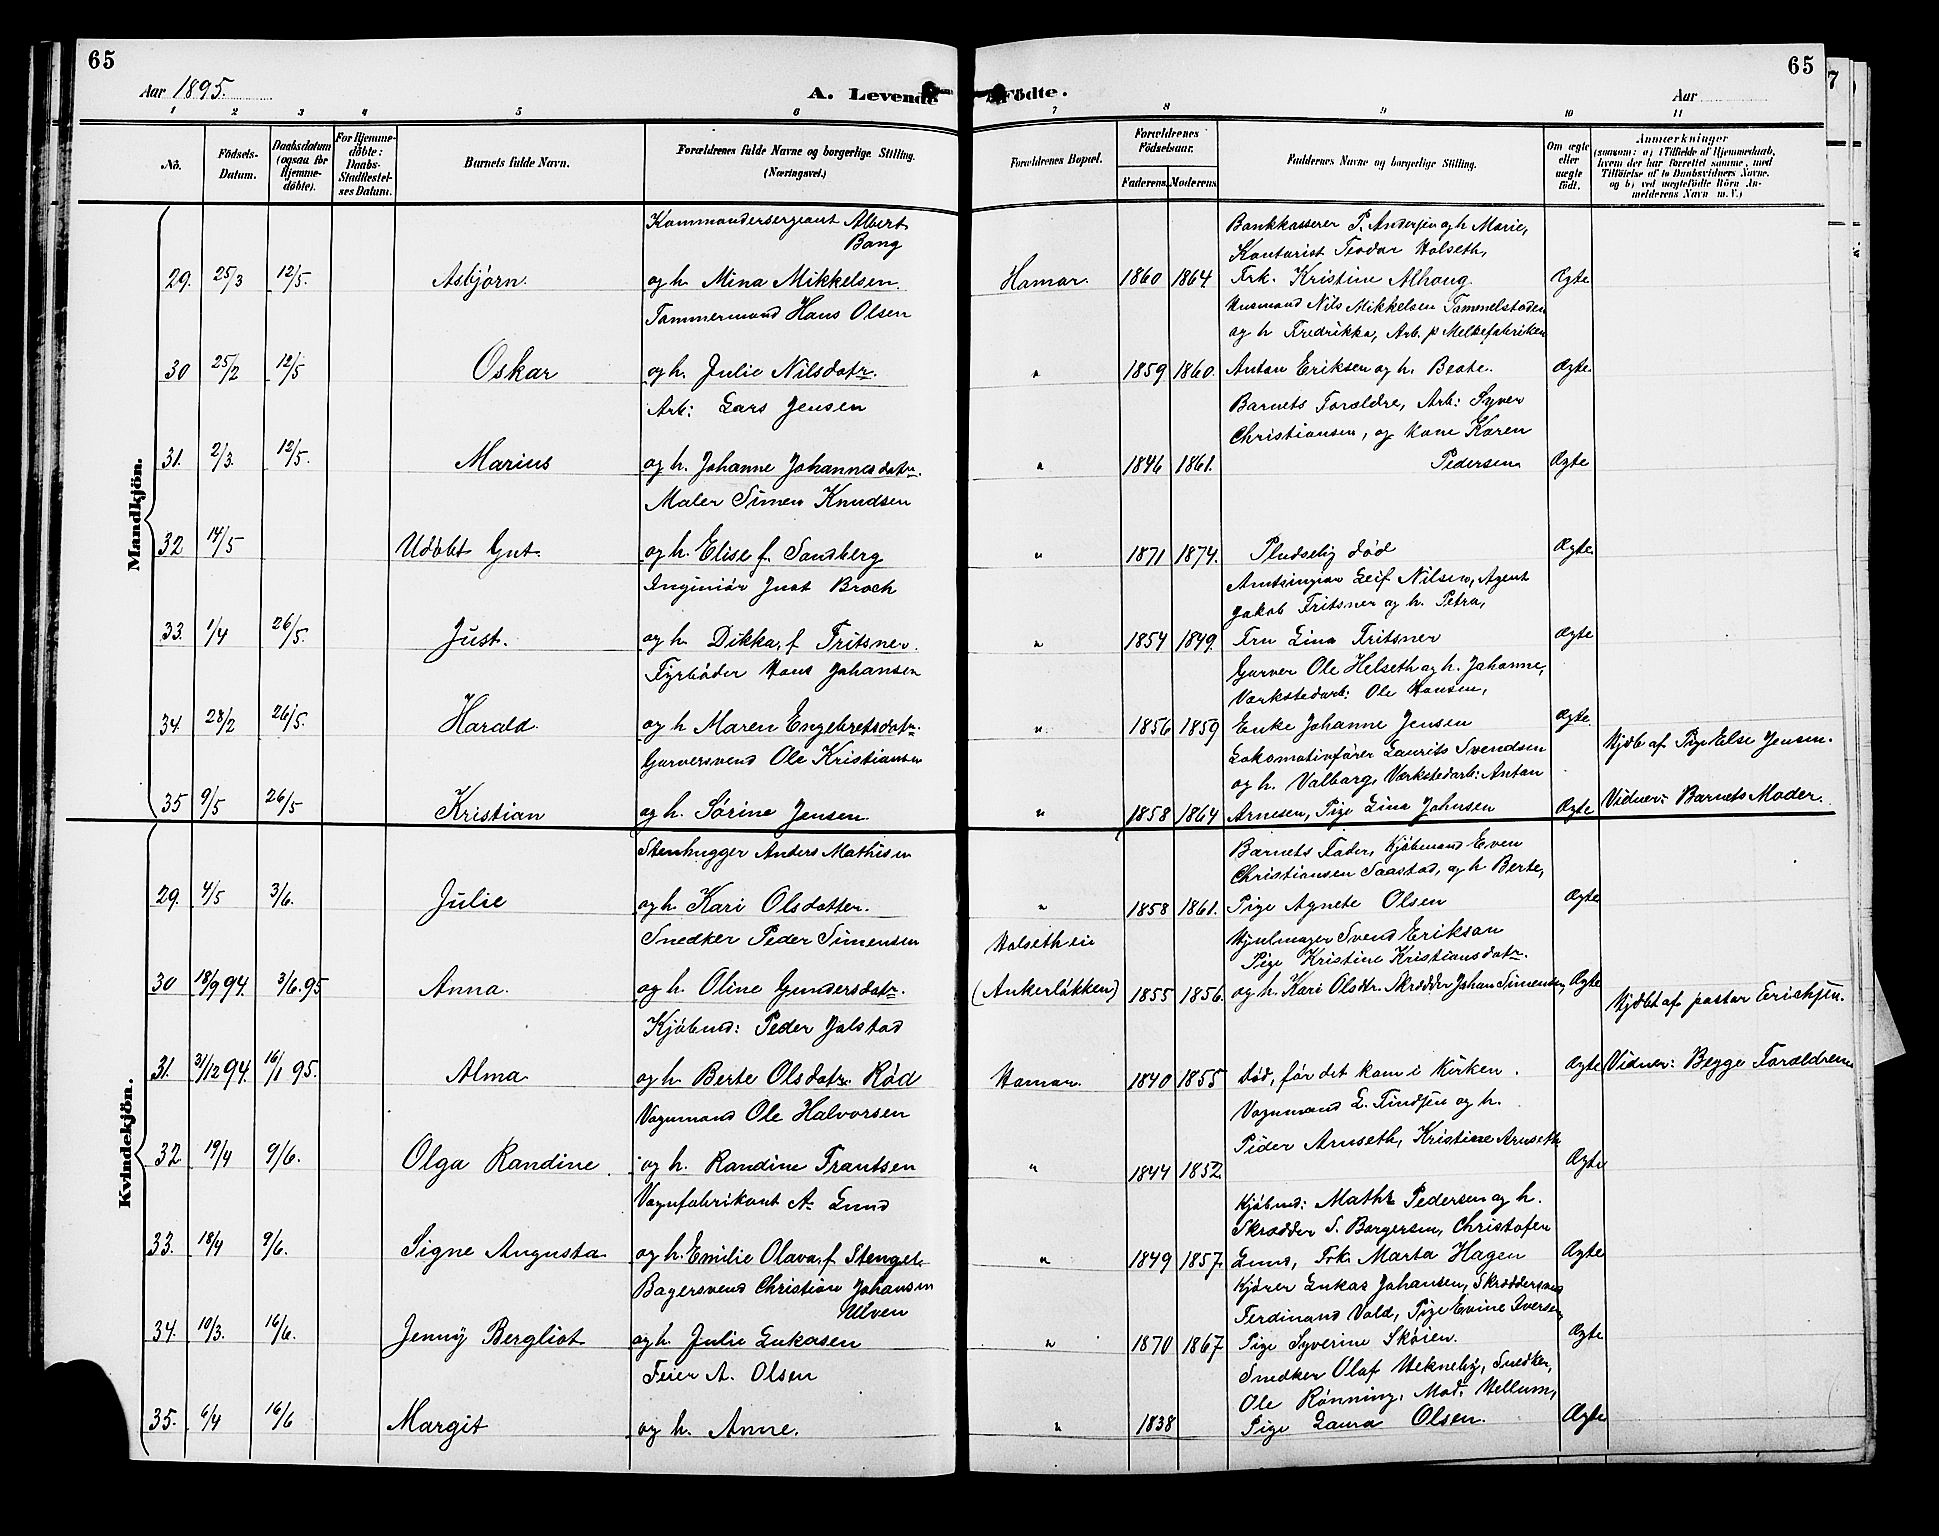 65
65
Aar 1895.
A. Levende Födte.
Aar
1 2 3 4 5 6 7 8 9 10 11
No.
Födsels-Datum.
Daabsdatum (ogsaa for Hjemmedöbte).
For Hjemmedöbte: Daabs-Stadfæstelses Datum.
Barnets fulde Navn.
Forældrenes fulde Navne og borgerlige Stilling. (Næringsvei.)
Forældrenes Bopæl.
Forældrenes Födselsaar.
Faderens. Moderens.
Faddernes Navne og borgerlige Stilling.
Om ægte eller uægte født.
Anmærkninger
(saasom: a) i Tilfælde af Hjemmedaab, hvem der har forrettet samme, med Tilføielse af to Daabsvidners Navne, og b) ved uægtefødte Börn Anmelderens Navn m. V.)
Mandkjön.
Kommandersergeant Albert Bang
Bankkasserer P. Andersen og h Marie,
Kontorist Teodor Holseth,
29. 25/3 12/5. Asbjørn. og h. Mina Mikkelsen. Hamar. 1860 1864 Frk. Kristine Alhaug. Ægte
Tømmermand Hans Olsen
Husmand Nils Mikkelsen Tommelstaden
og h Fredrikka, Arb. p Melkefabriken
30 25/2 12/5 Oskar og h. Julie Nilsdatr. " 1859 1860. Anton Eriksen og h. Beate. Ægte
Arb: Lars Jensen
Barnets Forældre, Arb: Syver
Christiansen, og Kone Karen
31. 2/3. 12/5. Marius og h. Johanne Johannesdatr. " 1846 1861. Pedersen Ægte
Maler Simen Knudsen
32 14/5 Udøbt Gut. og h. Elise f. Sandberg " 1871 1874. Pludselig død Ægte
Ingeniør Just Broch
Amtsingiør Leif Nilsen, Agent
Jakob Fritsner og h. Petra,
33. 1/4 26/5. Just. og h. Dikka, f Fritsner. " 1854 1849. Fru Lina Fritsner Ægte
Fyrbøder Hans Johansen
Garver Ole Helseth og h. Johanne,
Værkstedarb: Ole Hansen,
34. 28/2 26/5. Harald. og h Maren Engebretsdatr. " 1856 1859 Enke Johanne Jensen Ægte.
Garversvend Ole Kristiansen
Lokomotivfører Laurits Svendsen
og h. Valborg, Værkstedarb: Anton
Hjdb af Pige Else Jensen.
35 9/5 26/5 Kristian og h. Sørine Jensen. " 1858 1864 Arnesen, Pige Lina Johnsen Ægte Vidner: Barnets Moder.
Kvindekjön.
Stenhugger Anders Mathisen
Barnets Fader, Kjøbmand Even
Christiansen Saastad, og h Berte,
29. 4/5 3/6. Julie og h. Kari Olsdatter. " 1858 1861. Pige Agnete Olsen Ægte
Snedker Peder Simensen
Holsetheie
Hjulmager Svend Erikson
Pige Kristine Kristiansdatr.
30 18/9 94. 3/6.95 Anna. og h. Oline Gundersdatr. (Ankerløkken) 1855 1856. og h. Kari Olsdtr. Skrædder Johan Simensen, Ægte
Kjøbmd: Peder Jolstad
Hjdbt af pastor Erichsen.
31. 31/12 94. 16/1 95. Alma og h. Berte Olsdatr. Rød Hamar. 1840 1855 død, før det kom i Kirken. Ægte Vidner: Begge Forældrene
Vognmand Ole Halvorsen
Vognmand L. Findsen og h.
Peder Arnseth, Kristine Arnseth
32 19/4 9/6. Olga Randine. og h. Randine Frantsen " 1844 1852. Ægte
Vognfabrikant A. Lund
Kjøbmd: Maths Pedersen og h.
Skrædder S. Borgersen, Christofer
33. 18/4 9/6. Signe Augusta og h. Emilie Olava, f Stenget. " 1849 1857. Lund, Frk. Marta Hagen Ægte
Bagersvend Christian Johansen Ulven
Kjører Lukas Johansen, Skræddersvend
Ferdinand Vold, Pige Evine Iversen,
34. 10/3. 16/6. Jenny Bergliot og h. Julie Lukasen " 1870 1867 Pige Syverine Skøien. Ægte
Feier A. Olsen
Snedker Olaf Hekneby, Snedker,
Ole Rønning, Mad. Hellum,
35. 6/4 16/6 Margit og h. Anne. " 1838 Pige Laura Olsen. Ægte